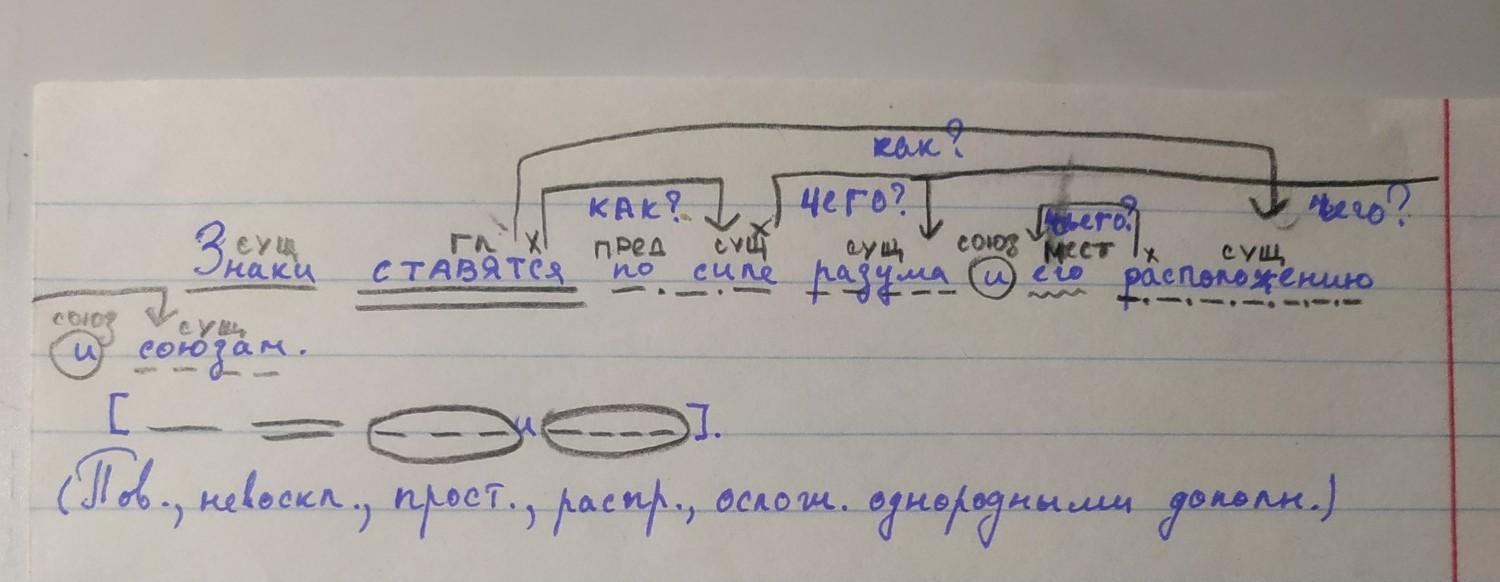 как?
как? чего? чьего? чьего?
сущ гл х пред сущ х сущ союз мест х сущ
Знаки ставятся по силе разума и его расположению
союз сущ
и союзам.
[ и ].
(Пов., невоскл., прост., распр., ослож. однородными дополн.)